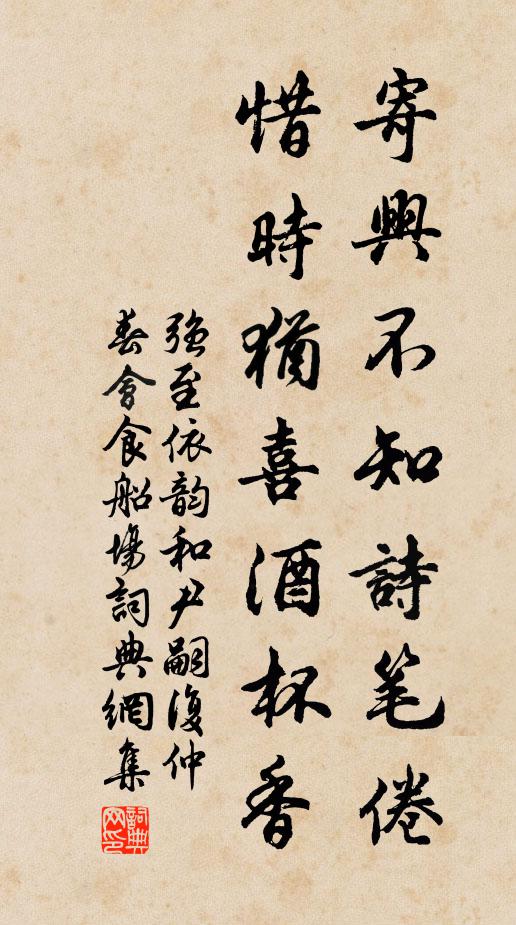 寄興不知詩笔倦
惜時猶喜酒杯香
強至依韵和尹嗣復仲
春會食船場詞典網集
詞典网印